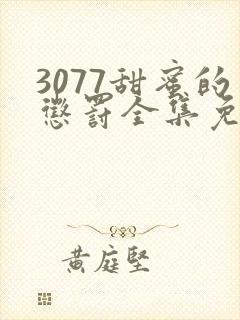 3077甜蜜的
惩罚全集免
黄庭坚